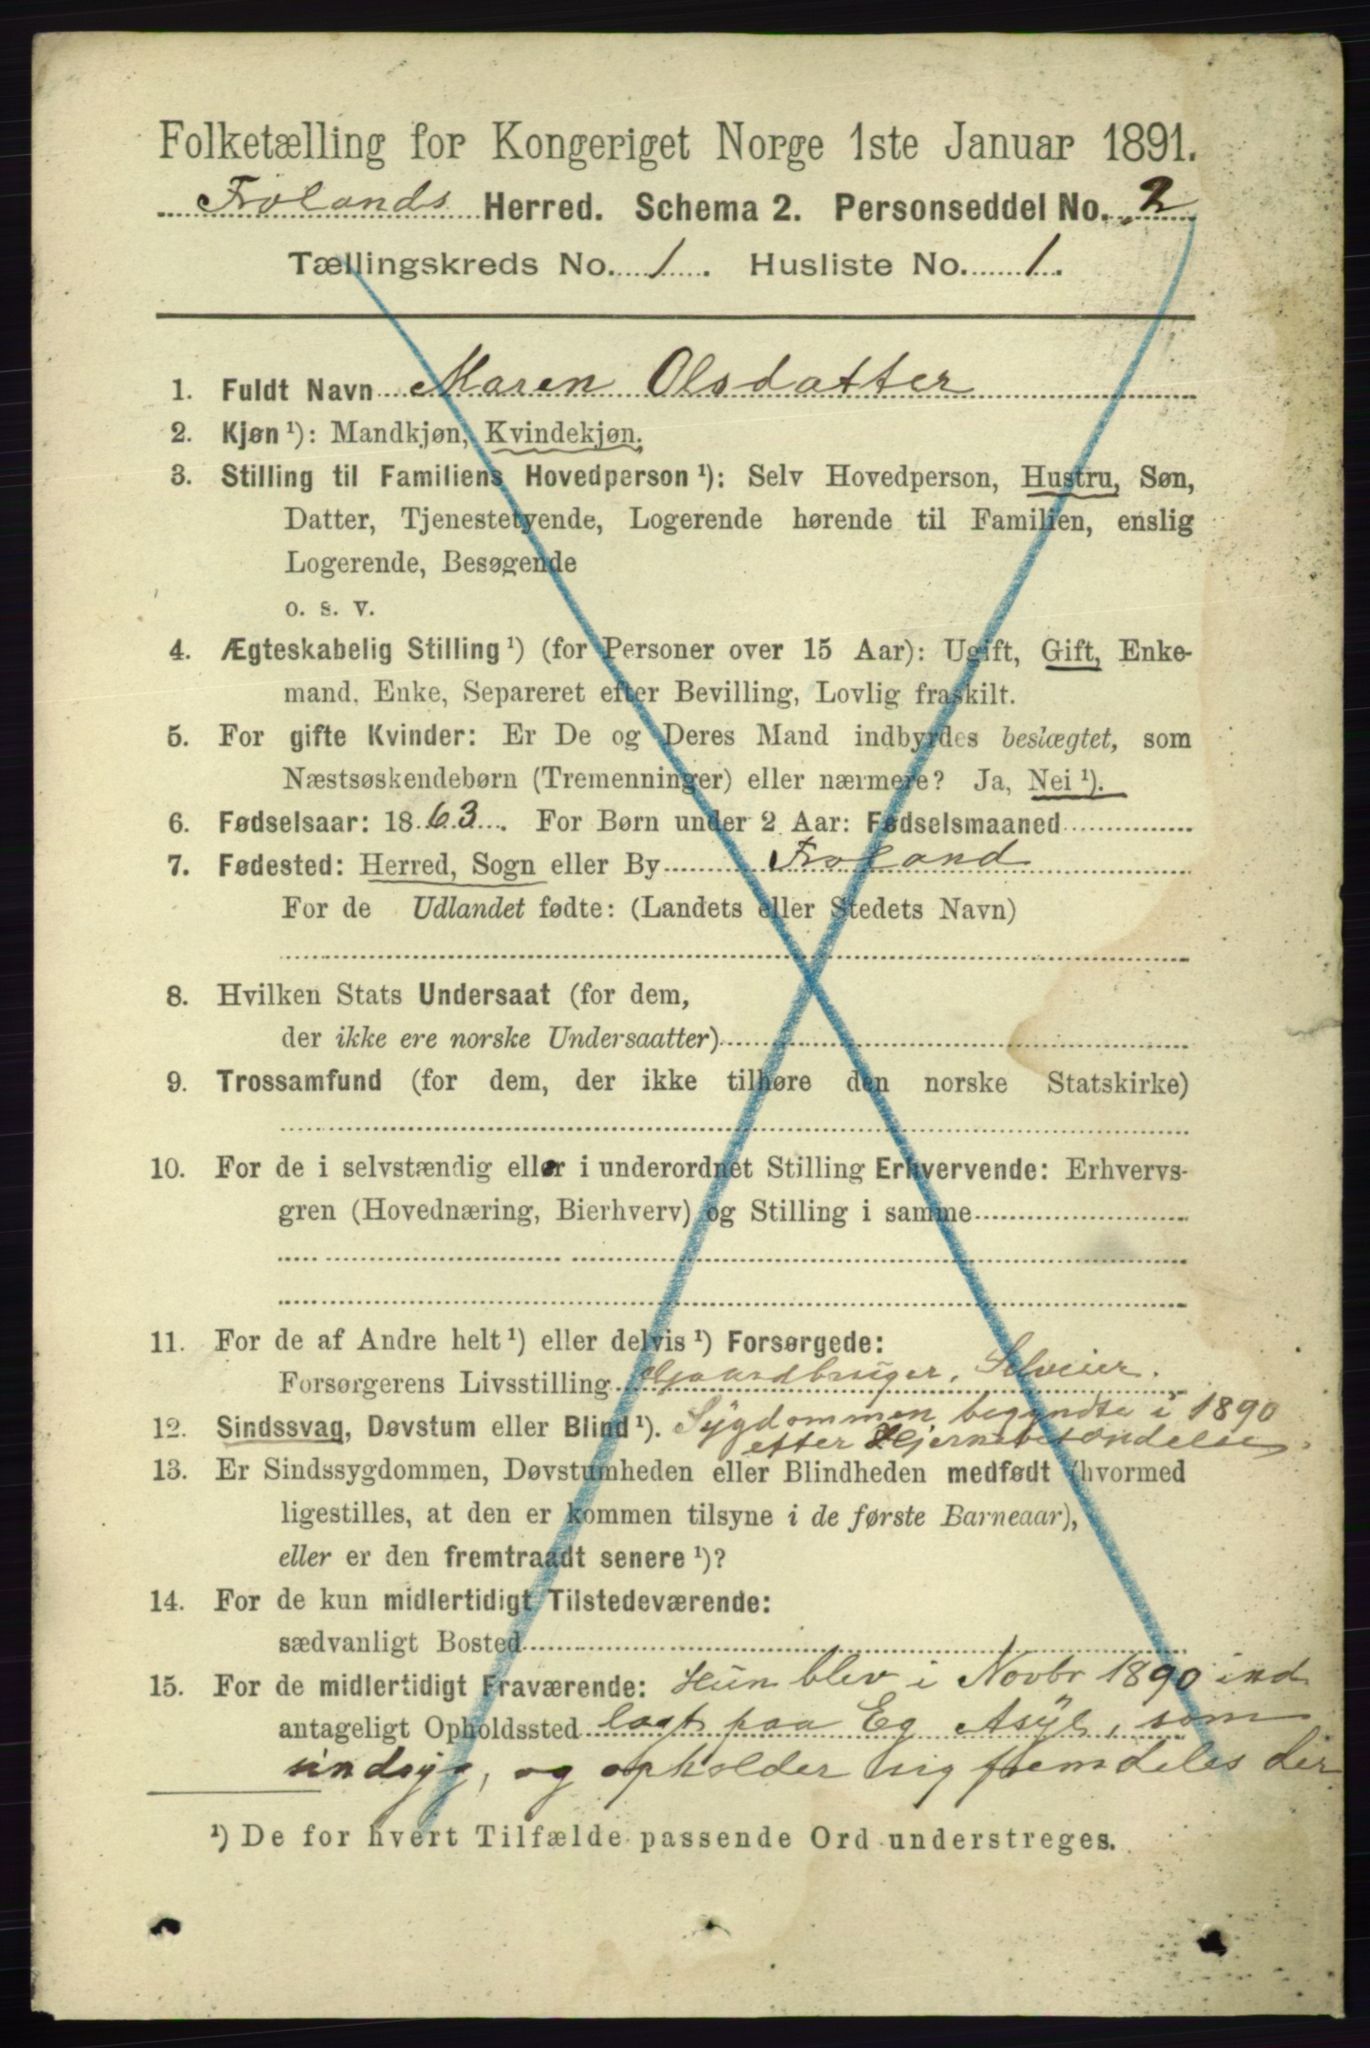 Folketælling for Kongeriget Norge 1ste Januar 1891.
Frolands Herred. Schema 2. Personseddel No. 2
Tællingskreds No. 1. Husliste No. 1.
1. Fuldt Navn Maren Olsdatter
2. Kjøn ¹): Mandkjøn, Kvindekjøn.
3. Stilling til Familiens Hovedperson ¹): Selv Hovedperson, Hustru, Søn,
Datter, Tjenestetyende, Logerende hørende til Familien, enslig
Logerende, Besøgende
o. s. v.
4. Ægteskabelig Stilling ¹) (for Personer over 15 Aar): Ugift, Gift, Enke-
mand, Enke, Separeret efter Bevilling, Lovlig fraskilt.
5. For gifte Kvinder: Er De og Deres Mand indbyrdes beslægtet, som
Næstsøskendebørn (Tremenninger) eller nærmere? Ja, Nei ¹).
6. Fødselsaar: 1863. For Børn under 2 Aar: Fødselsmaaned
7. Fødested: Herred, Sogn eller By Froland
For de Udlandet fødte: (Landets eller Stedets Navn)
8. Hvilken Stats Undersaat (for dem,
der ikke ere norske Undersaatter)
9. Trossamfund (for dem, der ikke tilhøre den norske Statskirke)
10. For de i selvstændig eller i underordnet Stilling Erhvervende: Erhvervs-
gren (Hovednæring, Bierhverv) og Stilling i samme
11. For de af Andre helt ¹) eller delvis ¹) Forsørgede:
Forsørgerens Livsstilling Gaardbruger, Selveier.
12. Sindssvag, Døvstum eller Blind ¹). Sygdommen begyndte i 1890
efter Hjernebetændelse.
13. Er Sindssygdommen, Døvstumheden eller Blindheden medfødt (hvormed
ligestilles, at den er kommen tilsyne i de første Barneaar),
eller er den fremtraadt senere ¹)?
14. For de kun midlertidigt Tilstedeværende:
sædvanligt Bosted
15. For de midlertidigt Fraværende: Hun blev i Novbr 1890 ind
antageligt Opholdssted lagt paa Eg Asyl, som
sindsyg, og opholder sig fremdeles der
¹) De for hvert Tilfælde passende Ord understreges.